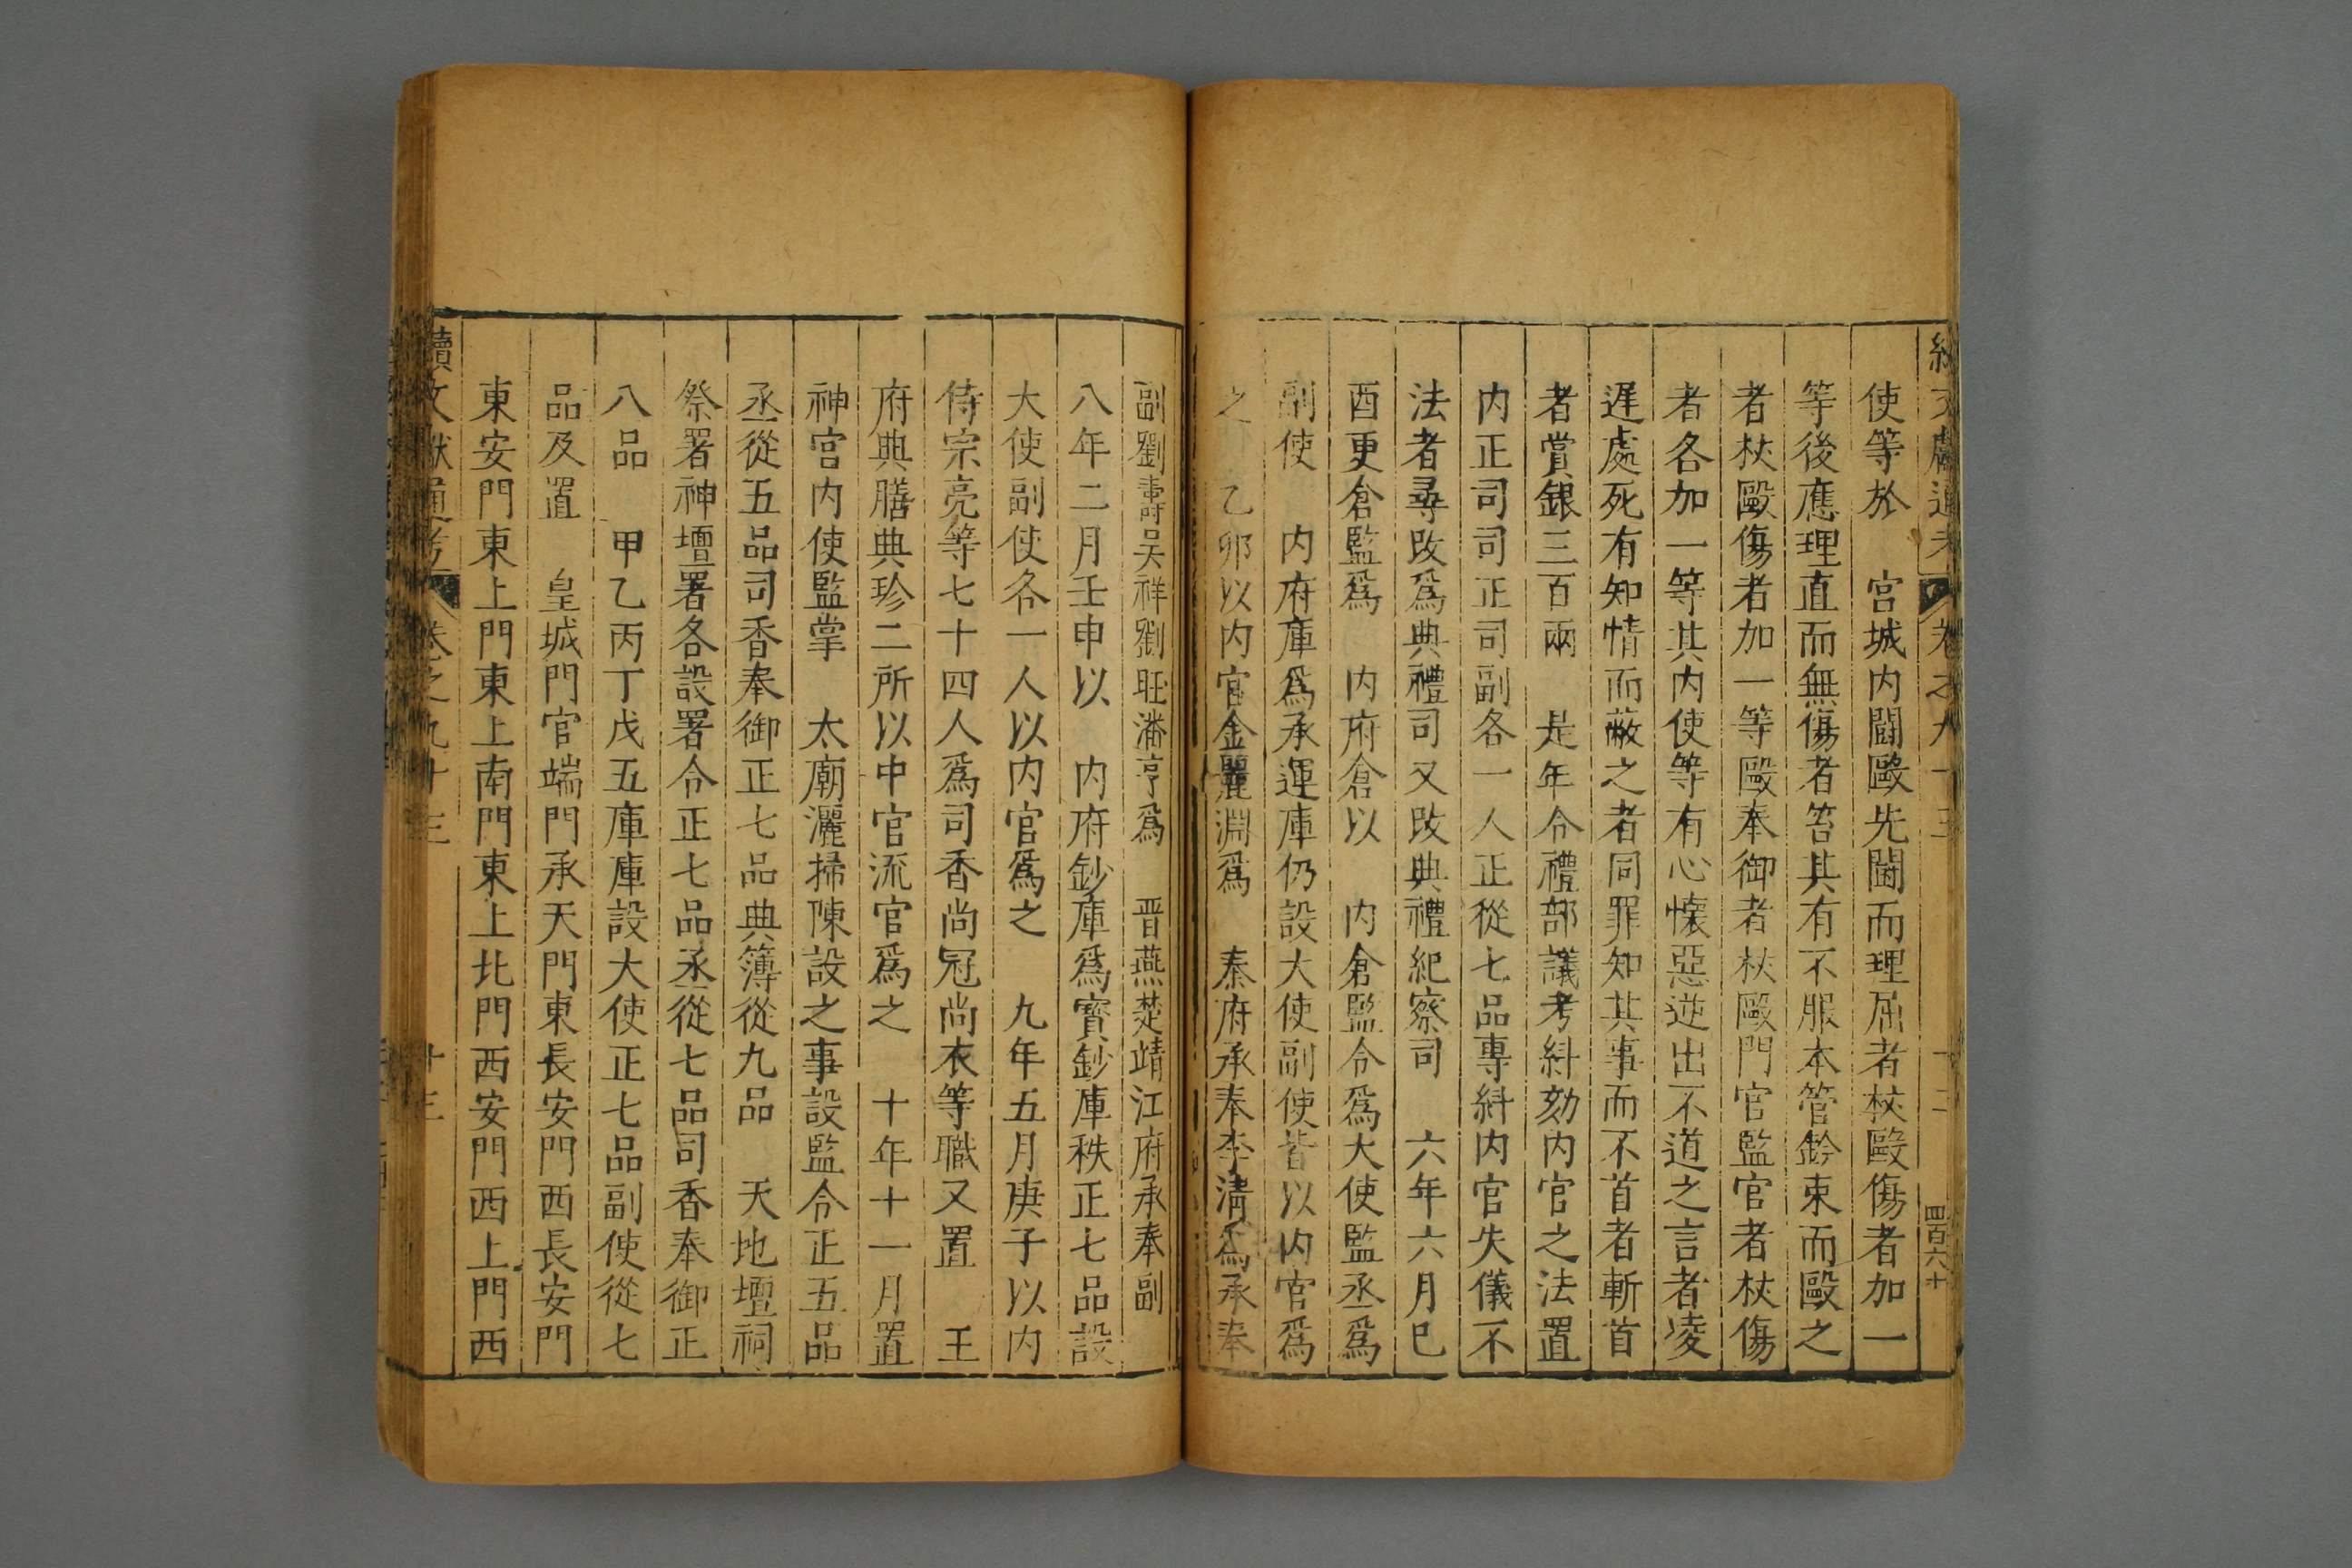 使等於　宮城内鬪毆先鬪而理屈者杖毆傷者加一
等後應理直而無傷者笞其有不服本管鈐束而毆之
者杖毆傷者加一等毆奉御者杖毆門官監官者杖傷
者各加一等其内使等有心懐惡逆出不道之言者凌
遲處死有知情而蔽之者同罪知其事而不首者斬首
者賞銀三百兩　是年令禮部議考糾劾内官之法置
内正司司正司副各一人正從七品專糾内官失儀不
法者尋改爲典禮司又改典禮紀察司　六年六月巳
酉更倉監爲　内府倉以　内倉監令爲大使監丞爲
副使　内府庫爲承運庫仍設大使副使皆以内官爲
之　乙卯以内官金麗淵爲　秦府承奉李清爲承奉
副劉壽吳祥劉旺潘亨爲　晋燕楚靖江府承奉副
八年二月壬申以　内府鈔庫爲寳鈔庫秩正七品設
大使副使各一人以内官爲之　九年五月庚子以内
侍宗亮等七十四人爲司香尚冠尚衣等職又置　王
府典膳典珍二所以中官流官爲之　十年十一月置
神宮内使監掌　太廟灑掃陳設之事設監令正五品
丞從五品司香奉御正七品典簿從九品　天地壇祠
祭署神壇署各設署令正七品丞從七品司香奉御正
八品　甲乙丙丁戊五庫庫設大使正七品副使從七
品及置　皇城門官端門承天門東長安門西長安門
東安門東上門東上南門東上北門西安門西上門西
續文獻通考　卷之九十三　十三
四百六十